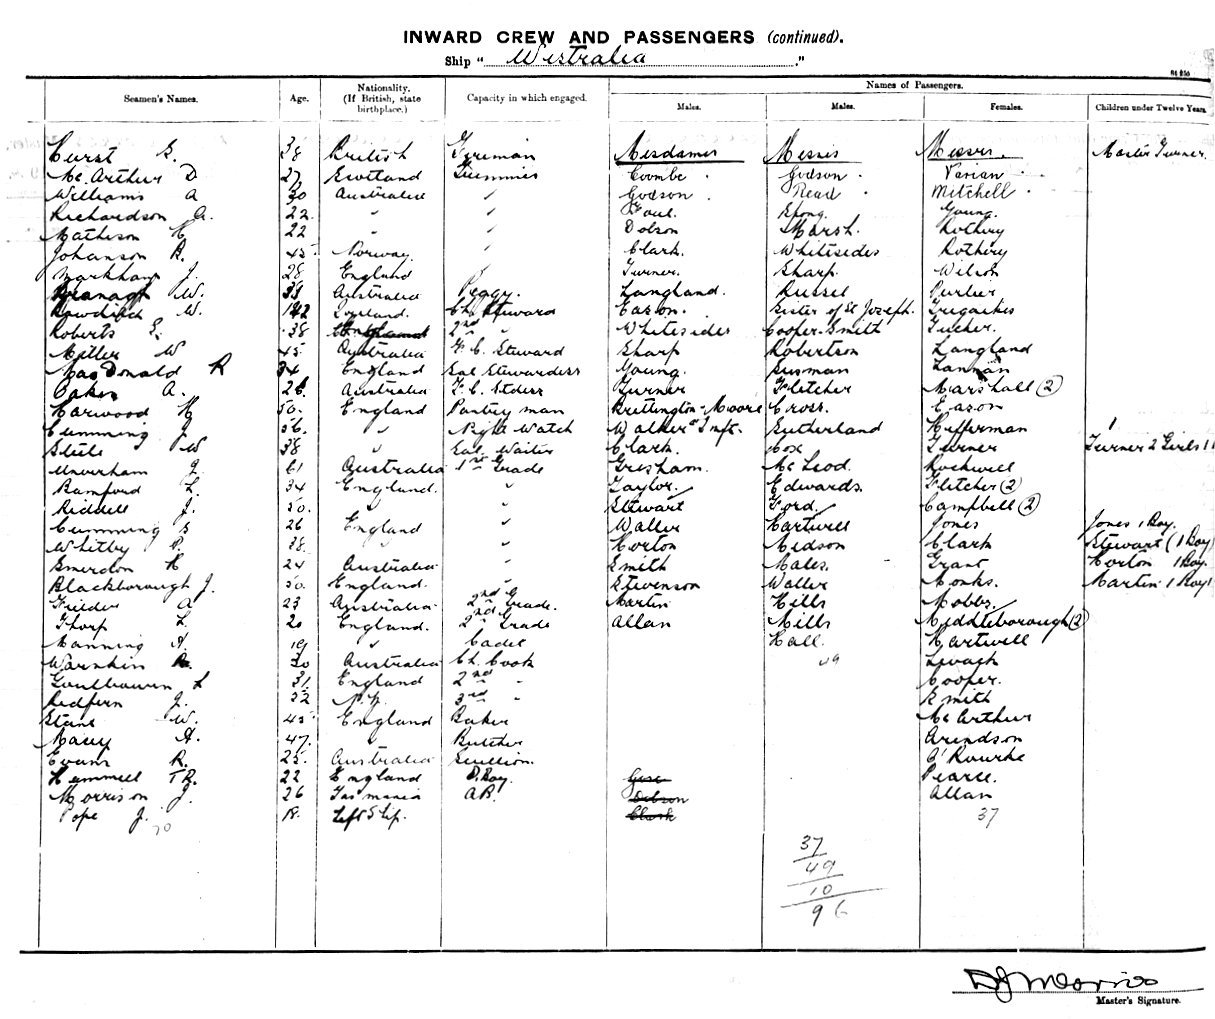 INWARD CREW AND PASSENGERS (continued).
Ship "Westralia."
Seamen's Names. Age. Nationality. (If British, state birthplace.) Capacity in which engaged. Names of Passengers.
Males. Males. Females. Children under Twelve Years.
Hurst G. 38 British Fireman Mesdames Messrs Messrs. Master Turner.
McArthur D 27 Scotland Trimmer Coombe Godson Vivian
Williams A 30 Australia " Godson Read Mitchell
Richardson A. 22 " " Spong. Young.
Matheson H 22 " " Dobson Marsh. Rothery
Johanson B. 45 Norway. " Clark. Whitesides Rothery
Markham J. 28 England Turner. Sharp. Wilson
W. 33 Australia Peggy. Langland. Russel Purlier
Bowditch W. 42 England. Ch. Steward Eason. Sister of St Joseph.
Roberts E. 38 2nd " Whitesides Cooper-Smith Tucker.
Miller W 45 Australia F. C. Steward Sharp Robertson Langland
MacDonald R 34 England Sal Stewardess Young. Lannan
Oaken A. 26 Australia F. C. Stdess Turner Fletcher Marshall (2)
Harwood H 50. England Pantry man Brettington-Moore Cross. Eason
Cumming J. 36. " Night Watch Walker & Inft. Sutherland Heffernan
Steele W 38 " Sal. Waiter Clark. Cox Turner Turner 2 Girls
Unverham J. 61 Australia 1st Grade Gresham. McLeod. Rockwell
Bamford L. 34 England. " Taylor. Edwards. Fletcher (2)
Riddell J. 50. " Stewart Ford. Campbell (2)
Cumming G 26 England " Waller Hartwell Jones Jones 1 Boy.
Whitby P. 38 " " Horton Hidson Clark Stewart (1 Boy)
Smerdon H 24 Australia " Smith Males. Grant Horton 1 Boy.
Blackborough J. 50. England. " Stevenson Waller Monks. Martin 1 Boy
A 23 Australia 2nd Grade. Martin Hills Mobbs.
Thorp L. 20 England. 2nd Grade Allan Mills Middleborough (2)
Manning A. 19 " Cadet Hall. Hartwell
30 Australia Ch. Cook 49
L 31 England 2nd " Cooper.
Redfern J. 32 N.Z. 3rd " Smith
Stone W. 45 England Baker McArthur
Macey A. 47. " Butcher Arindson
Evans R. 25. Australia Scullion. O'Rourke
Hummell T R. 22 England P. Boy. Pearce.
Morrison J. 26 Tasmania AB. Dobson Allan
Pope J. 18. Left Ship. Clark 37
70
37
49
10
96
Master's Signature.